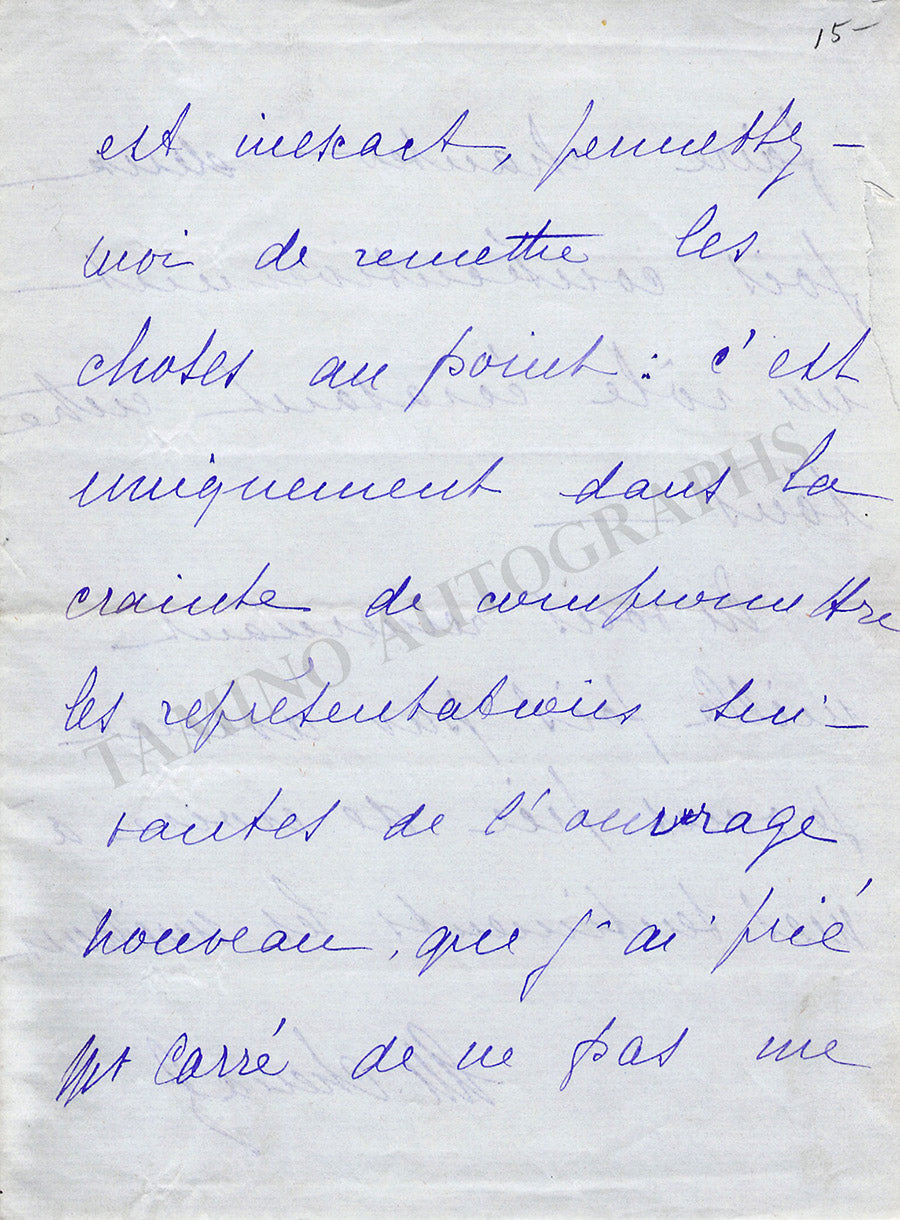 15-
est inexact, permettez-
moi de remettre les
choses au point : c'est
uniquement dans la
crainte de compromettre
les représentations sui-
vantes de l'ouvrage
nouveau, que j'ai prié
Mr Carré de ne pas me
TAMINO AUTOGRAPHS